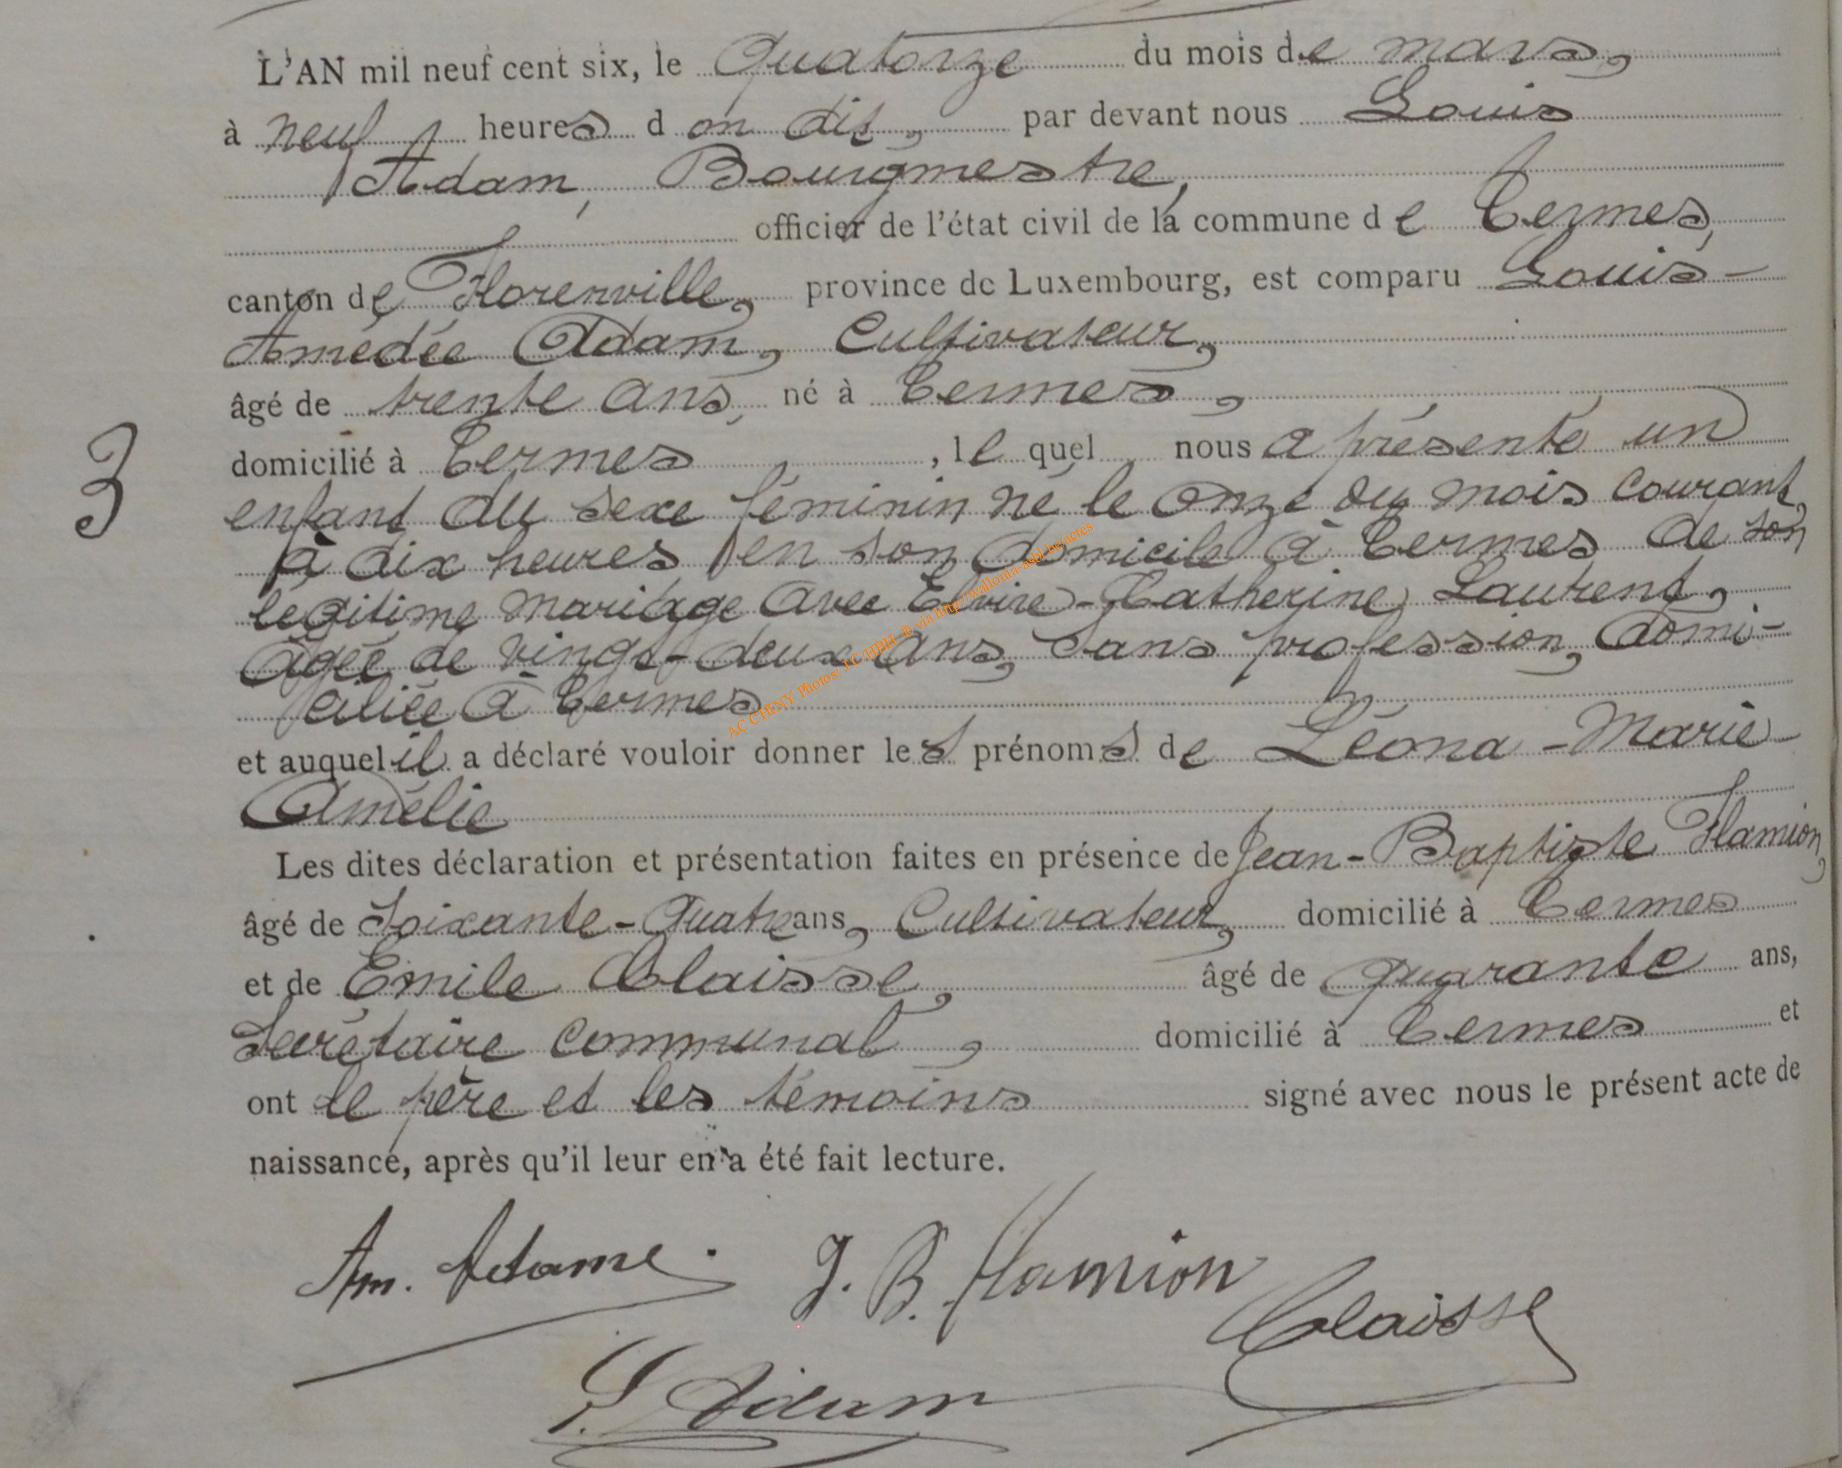 L'AN mil neuf cent six, le Quatorze du mois de mars,
à neuf heures d on dit, par devant nous Louis
Adam, Bourgmestre,
officier de l'état civil de la commune de Termes,
canton de Florenville, province de Luxembourg, est comparu Louis-
Amédée Adam, Cultivateur,
âgé de trente ans, né à Termes,
3
domicilié à Termes, lequel nous a présenté un
enfant du sexe féminin né le onze du mois courant,
à dix heures en son domicile à Termes de son
légitime mariage avec Elvire-Catherine Laurent,
âgée de vingt-deux ans, sans profession, domi-
ciliée à Termes
AC CHINY Photos:
et auquel il a déclaré vouloir donner les prénoms de Léona-Marie-
Amélie
Les dites déclaration et présentation faites en présence de Jean-Baptiste Hamion,
âgé de Soixante-Quatre ans, Cultivateur, domicilié à Termes
et de Emile Claisse, âgé de quarante ans,
Secrétaire communal, domicilié à Termes et
ont le père et les témoins signé avec nous le présent acte de
naissance, après qu'il leur en a été fait lecture.
Am. Adam. J. B. Hamion
Claisse
L. Adam